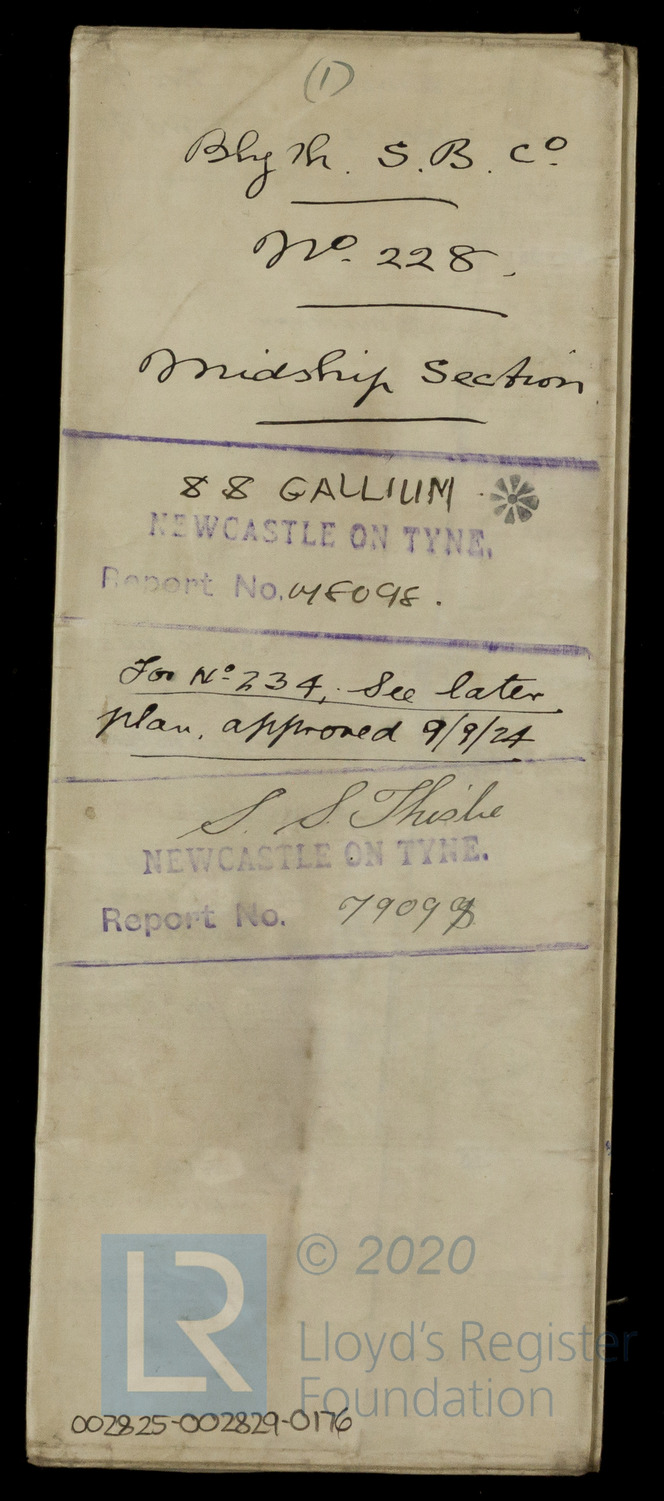 (1)
Blyth. S.B. Cº.
Nº. 228.
Midship Section
SS GALLIUM
NEWCASTLE ON TYNE.
Report No. 78098.
For Nº 234, See later
plan, approved 9/9/24
S. S. Thisbe
NEWCASTLE ON TYNE.
Report No. 79098
LR
© 2020
Lloyd's Register
Foundation
002825-002829-0176